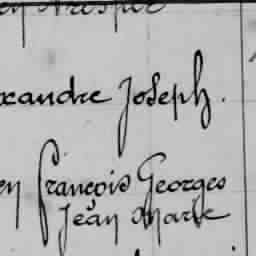 xandre Joseph.
en François Georges
Jean Marie